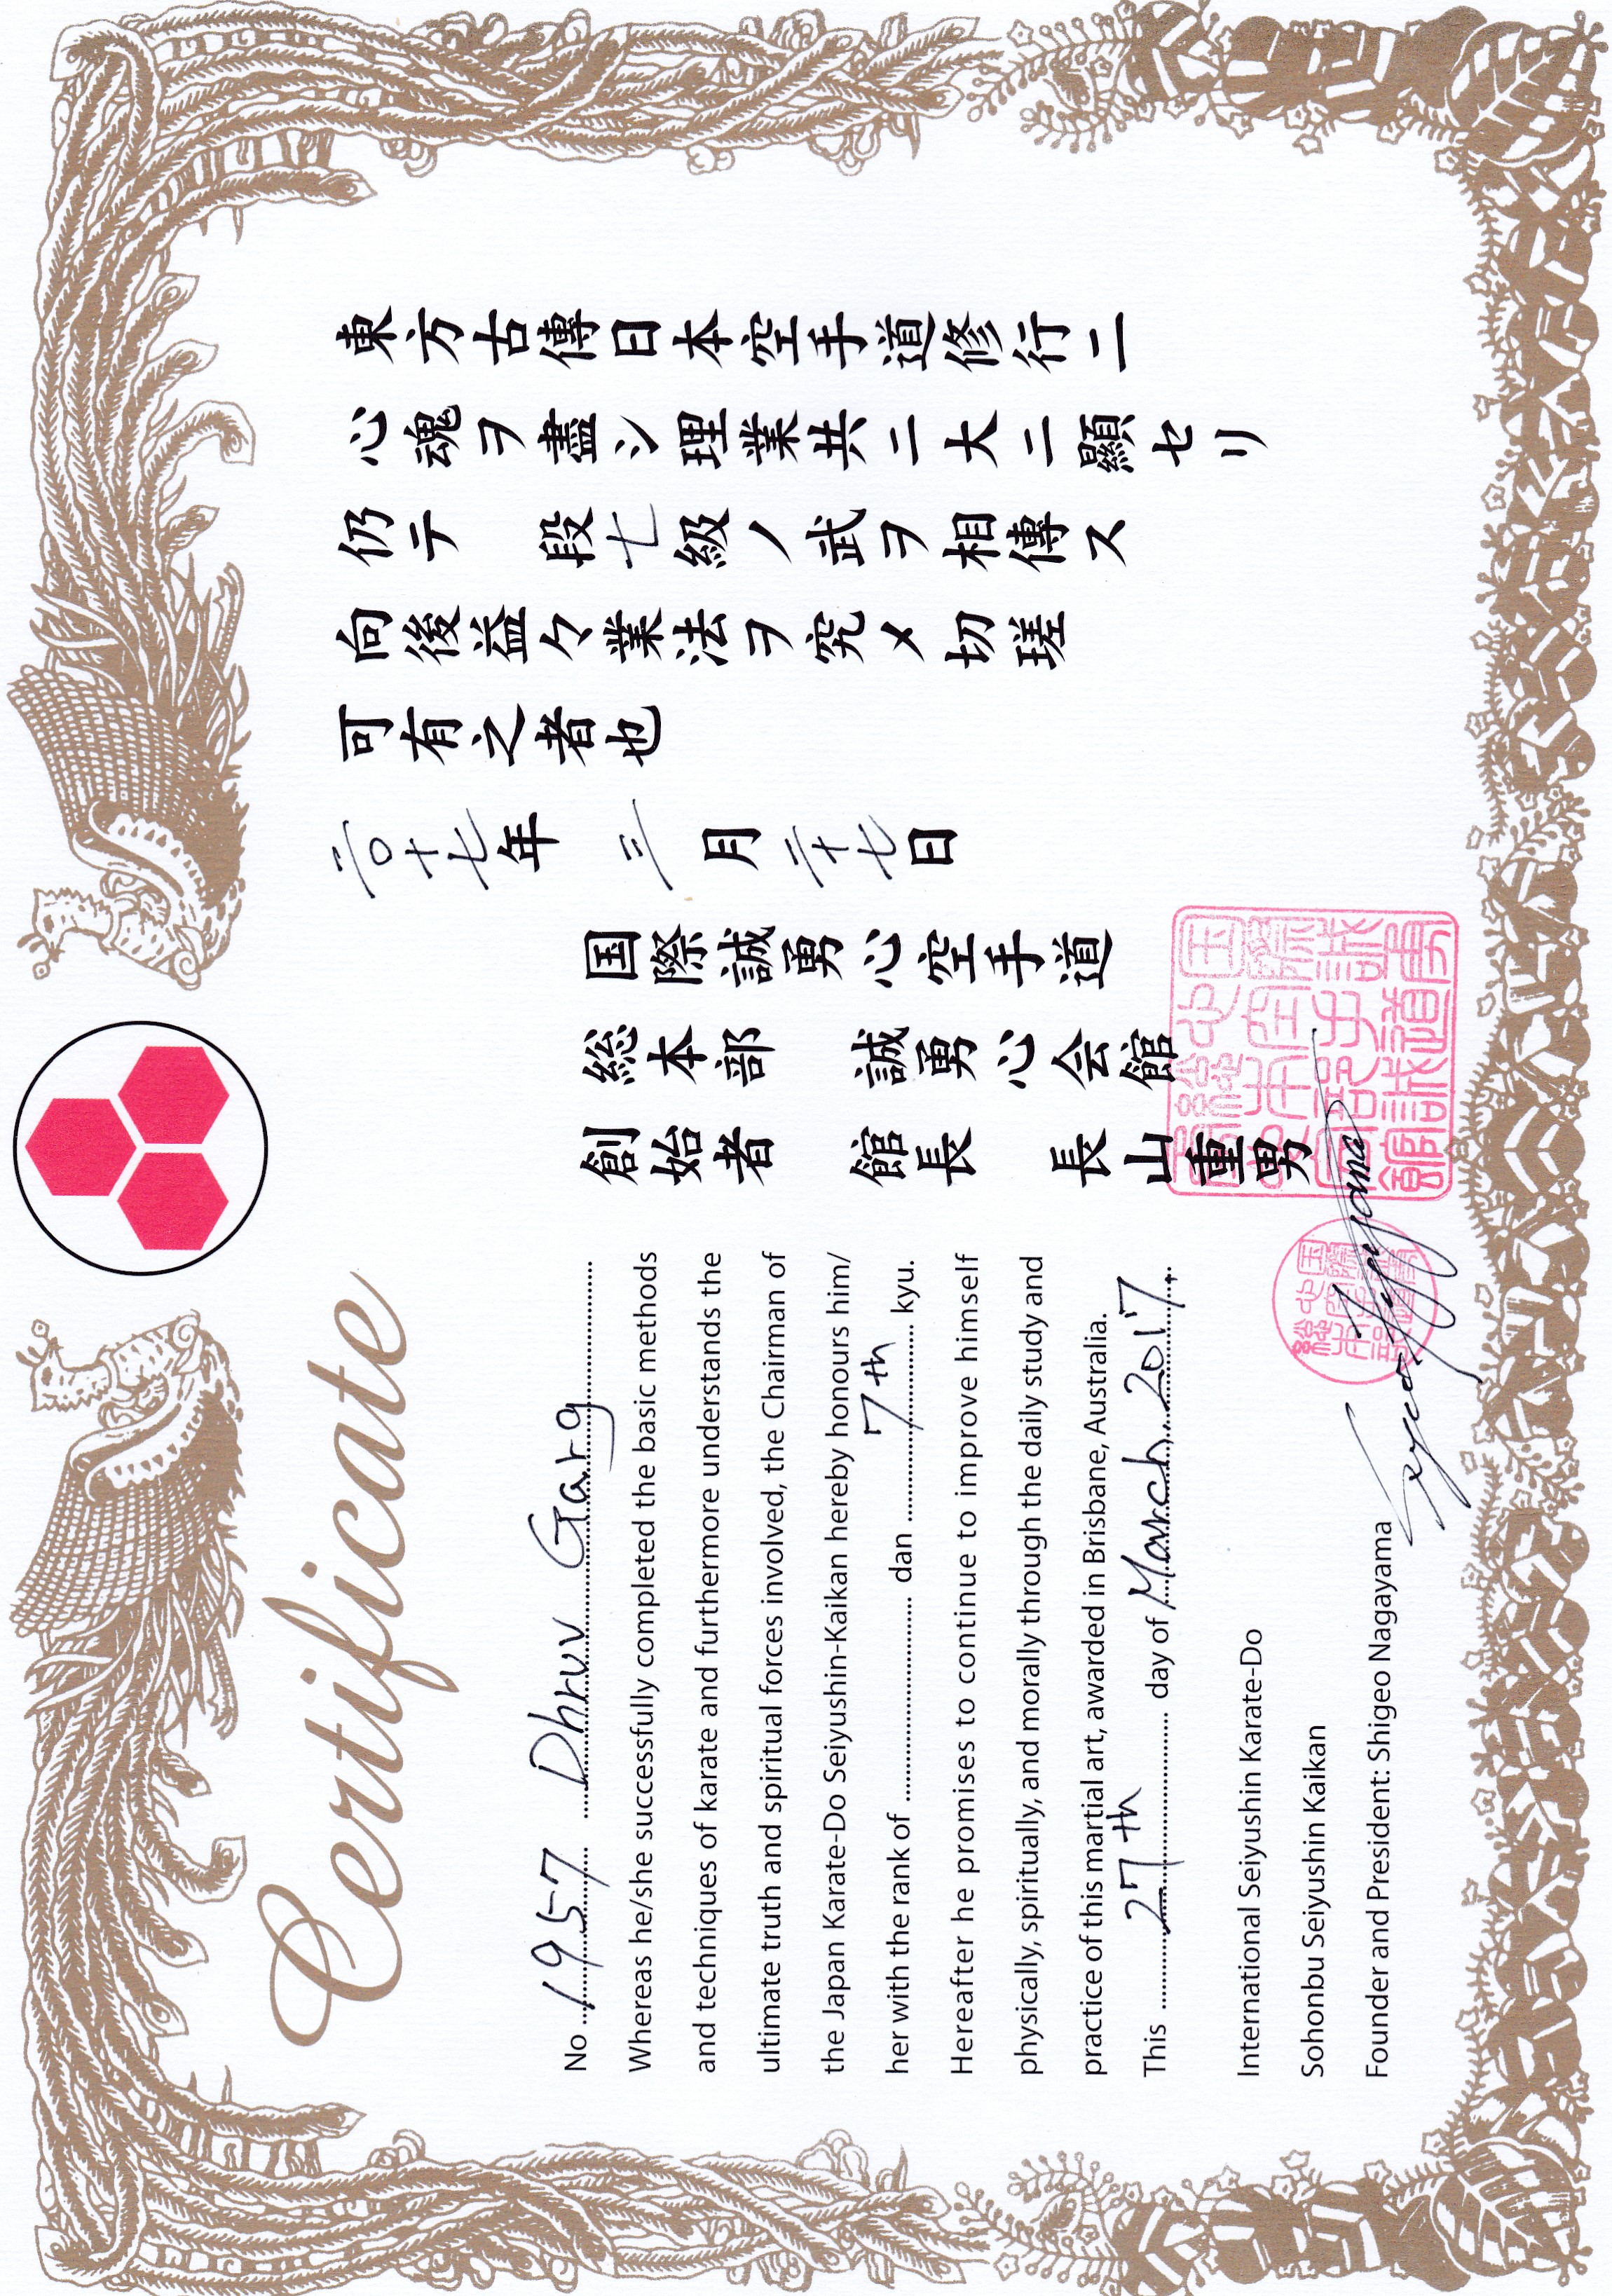 Certificate
No 1957 Dhruv Garg
Whereas he/she successfully completed the basic methods
and techniques of karate and furthermore understands the
ultimate truth and spiritual forces involved, the Chairman of
the Japan Karate-Do Seiyushin-Kaikan hereby honours him/
her with the rank of ........ dan 7th kyu.
Hereafter he promises to continue to improve himself
physically, spiritually, and morally through the daily study and
practice of this martial art, awarded in Brisbane, Australia.
This 27th day of March. 2017.
International Seiyushin Karate-Do
Sohonbu Seiyushin Kaikan
Founder and President: Shigeo Nagayama
東方古傳日本空手道修行ニ
心魂ヲ盡シ理業共ニ大ニ顯セリ
仍テ 段七級ノ武ヲ相傳ス
向後益々業法ヲ究メ切瑳
可有之者也
二〇十七年 三月二十七日
国際誠勇心空手道
総本部 誠勇心会館
創始者 館長 長山重男
国際誠勇
心空手道
総本部誠
勇心会館
国際誠勇
心空手道
総本部